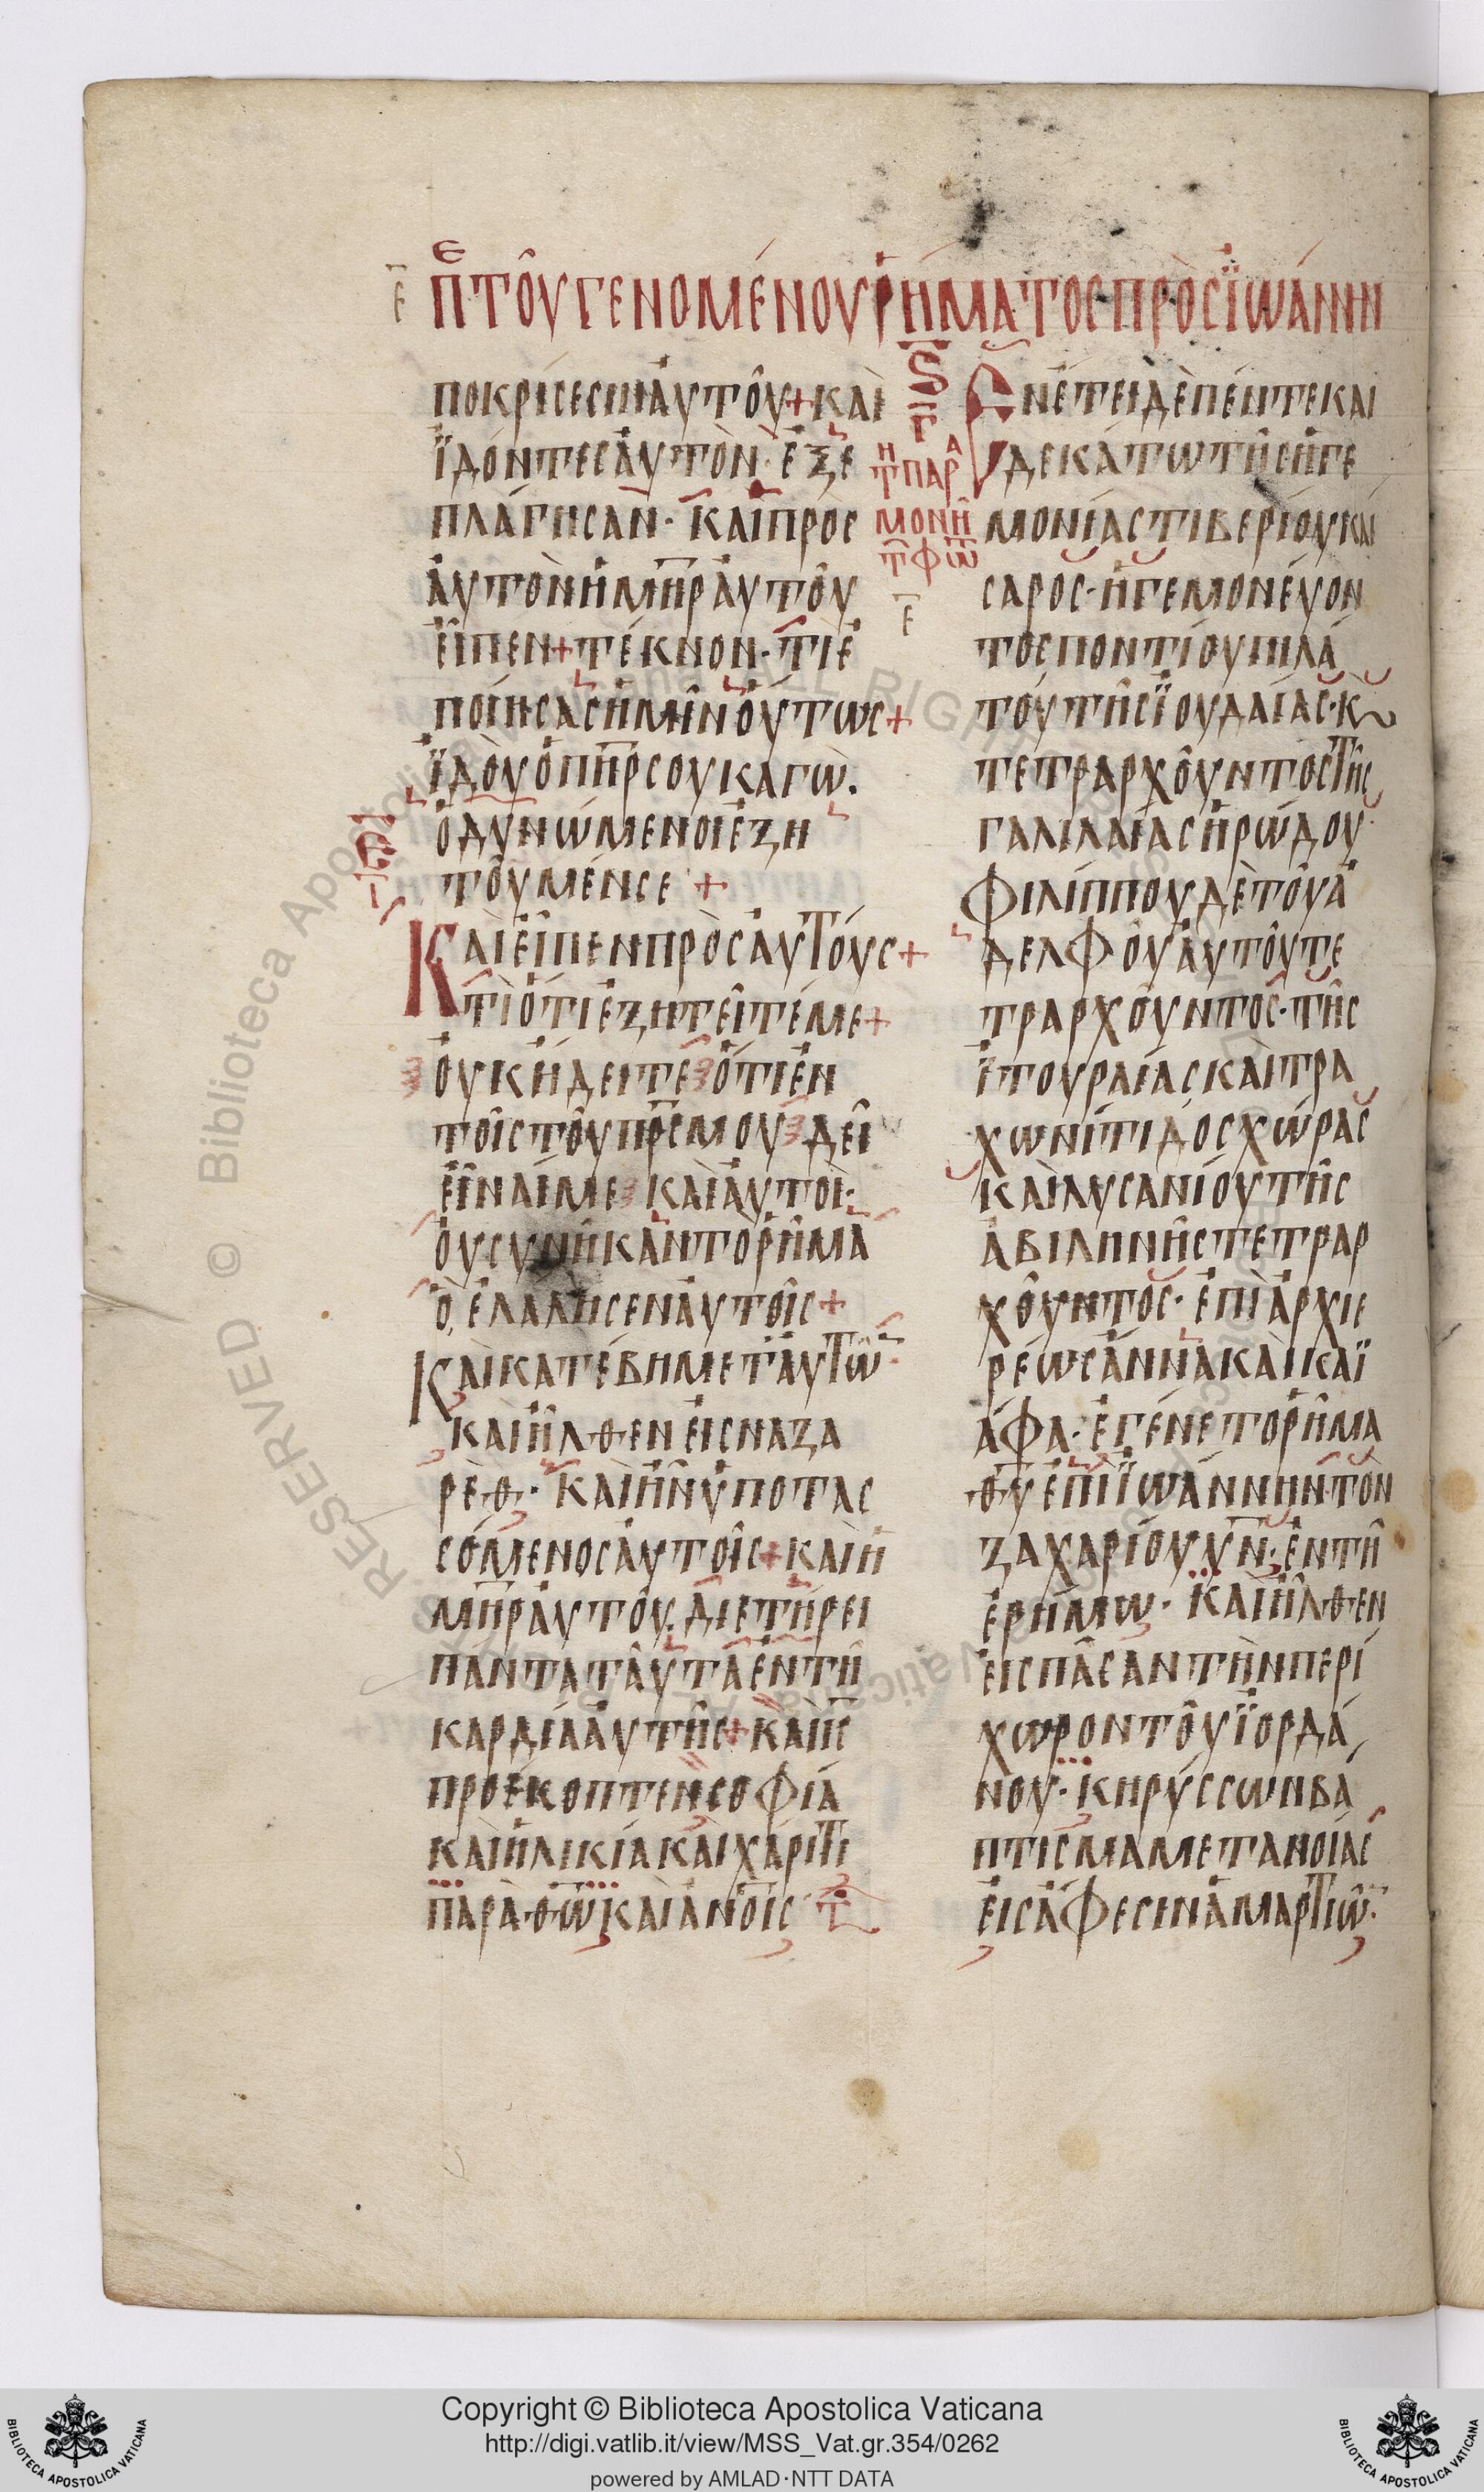 Ε ΠΕ ΤΟΥ ΓΕΝΟΜΕΝΟΥ ΡΗΜΑΤΟΣ ΠΡΟΣ ΙΩΑΝΝΗΝ
ποκρίσεσιν ἀυτοῦ + καὶ
ϊδόντες ἀυτὸν· ἐξε
πλάγησαν· καὶ πρὸς
ἀυτὸν ἡ μηρ ἀυτοῦ
εἶπεν + τέκνον· τί ἐ
ποίησας ἡμῖν ὅυτως +
ϊδοὺ ὁ πηρ σου καγὼ.
ὀδυνώμενοι ἐζη
τοῦμέν σε +
Καὶ εἶπεν πρὸς ἀυτούς +
τί ὅτι ἐζητεῖτέ με +
οὐκ ἤδειτε ὅτι ἐν
τοῖς τοῦ πρς μου δεῖ
εἶναί με καὶ ἀυτοὶ·
ὀυ συνῆκαν τὸ ῥῆμα
ὃ, ἐλάλησεν ἀυτοῖς +
Καὶ κατέβη μετ ἀυτῶ
καὶ ἦλθεν εἰς ναζα
ρέθ· καὶ ἦν ὑποτας
σόμενος ἀυτοῖς + καὶ ἡ
μηρ ἀυτοῦ. διετήρει
πάντα ταῦτα ἐν τῆ
καρδία ἀυτῆς + καὶ ις
προέκοπτεν σοφία
καὶ ἡλικία καὶ χάριτι
παρὰ θω καὶ ανοις
Ϛ
Γ
ΤΗ ΠΑΡΑ
ΜΟΝΗ
Τ ΦΩΤ
Ε
Ἐν ἔτει δὲ πέντε και
δεκάτω τῆς ἡγε
μονίας τιβερίου καί
σαρος· ἡγεμονέυον
τος ποντίου πιλά
του τῆς ϊουδαίας· κ
τετραρχοῦντος τῆς
γαλιλαίας ἡρώδου
Φιλίππου δὲ τοῦ ἀ
δελφοῦ ἀυτοῦ τε
τραρχοῦντος· τῆς
ἰτουραίας καὶ τρα
χωνίτιδος χώρας
καὶ λυσανίου τῆς
ἀβιληνῆς τετραρ
χοῦντος· ἐπὶ ἀρχιε
ρέως ἄννα καὶ καϊ
άφα· ἐγένετο ῥῆμα
θυ ἐπὶ ϊωάννην· τὸν
ζαχαρίου υν· ἐν τῆ
ἐρήμω· καὶ ἦλθεν
εἰς πᾶσαν τὴν περί
χωρον τοῦ ϊορδά
νου· κηρύσσων βά
πτισμα μετανοίας
εἰς ἄφεσιν ἁμαρτιῶ·
Copyright © Biblioteca Apostolica Vaticana
http://digi.vatlib.it/view/MSS_Vat.gr.354/0262
powered by AMLAD·NTT DATA
BIBLIOTECA APOSTOLICA VATICANA
BIBLIOTECA APOSTOLICA VATICANA